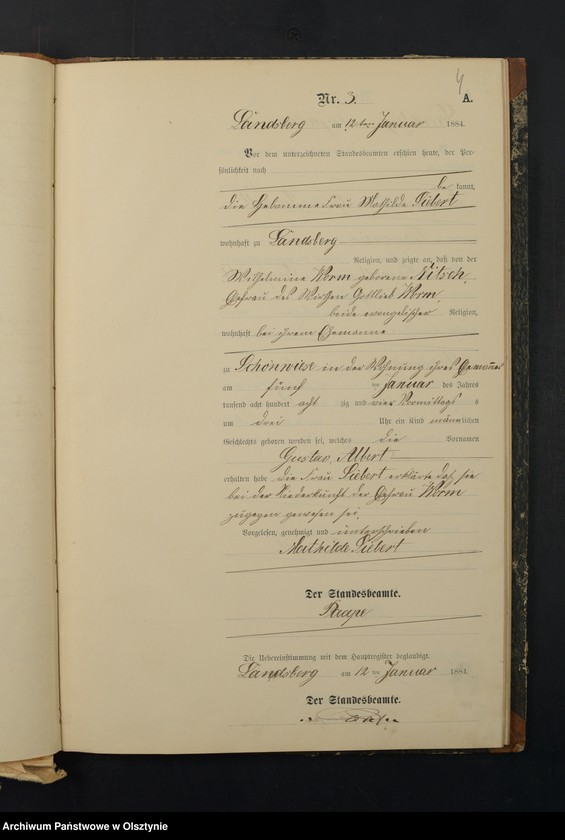 4
Nr. 3. A.
Landsberg am 12ten Januar 1884.
Vor dem unterzeichneten Standesbeamten erschien heute, der Per-
sönlichkeit nach
be kannt,
die Hebamme Frau Mathilde Siebert
wohnhaft zu Landsberg
Religion, und zeigte an, daß von der
Wilhelmine Worm geborene Nitsch,
Ehefrau des Gottlieb Worm,
beide evangelischer Religion,
wohnhaft bei ihrem Ehemanne
zu Schönwiese in der Wohnung ihres Ehemannes
am fünf ten Januar des Jahres
tausend acht hundert acht zig und vier Vormittags s
um drei Uhr ein Kind männlichen
Geschlechts geboren worden sei, welches die Vornamen
Gustav, Albert
erhalten habe die Frau Siebert erklärte daß sie
bei der Niederkunft der Ehefrau Worm
zugegen gewesen sei.
Vorgelesen, genehmigt und unterschrieben
Mathilde Siebert
Der Standesbeamte.
Die Uebereinstimmung mit dem Hauptregister beglaubigt.
Landsberg am 12ten Januar 1884.
Der Standesbeamte.
Archiwum Państwowe w Olsztynie